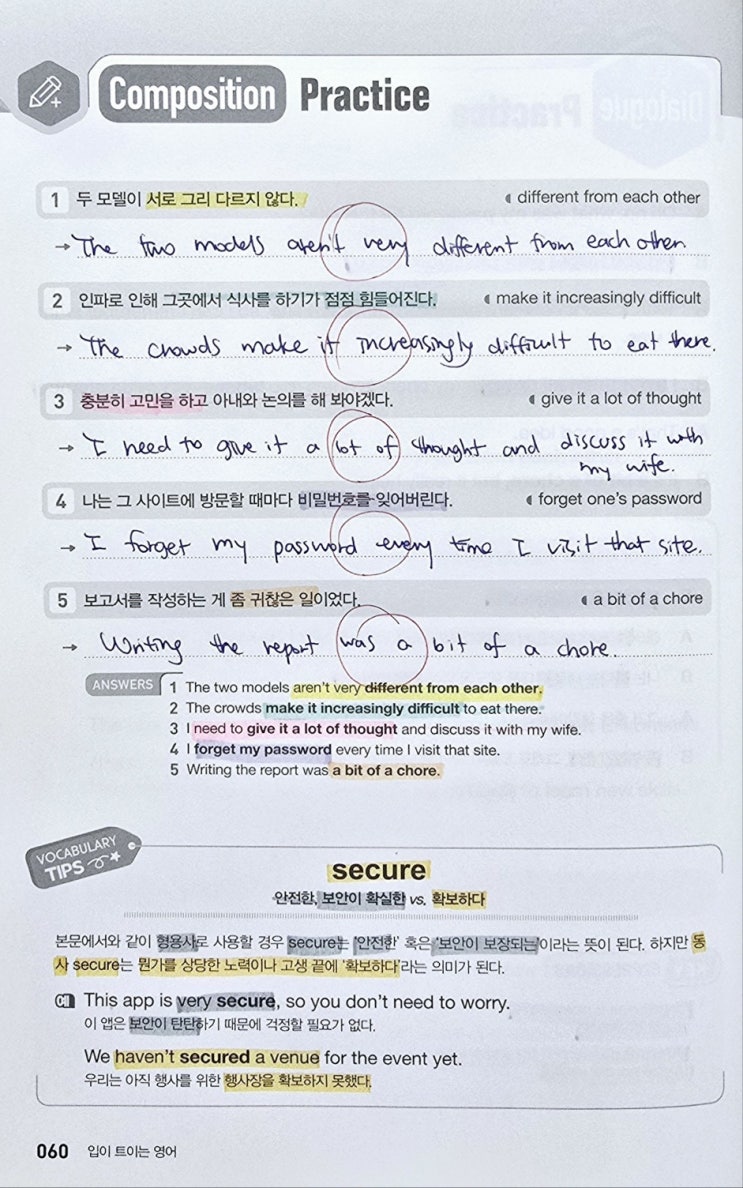 Composition Practice
1 두 모델이 서로 그리 다르지 않다. different from each other
→ The two models aren't very different from each other.
2 인파로 인해 그곳에서 식사를 하기가 점점 힘들어진다. make it increasingly difficult
→ The crowds make it increasingly difficult to eat there.
3 충분히 고민을 하고 아내와 논의를 해 봐야겠다. give it a lot of thought
→ I need to give it a lot of thought and discuss it with
my wife.
4 나는 그 사이트에 방문할 때마다 비밀번호를 잊어버린다. forget one's password
→ I forget my password every time I visit that site.
5 보고서를 작성하는 게 좀 귀찮은 일이었다. a bit of a chore
→ Writing the report was a bit of a chore.
ANSWERS 1 The two models aren't very different from each other.
2 The crowds make it increasingly difficult to eat there.
3 I need to give it a lot of thought and discuss it with my wife.
4 I forget my password every time I visit that site.
5 Writing the report was a bit of a chore.
VOCABULARY
TIPS
secure
안전한, 보안이 확실한 vs. 확보하다
본문에서와 같이 형용사로 사용할 경우 secure는 '안전한' 혹은 '보안이 보장되는'이라는 뜻이 된다. 하지만 동
사 secure는 뭔가를 상당한 노력이나 고생 끝에 '확보하다'라는 의미가 된다.
예 This app is very secure, so you don't need to worry.
이 앱은 보안이 탄탄하기 때문에 걱정할 필요가 없다.
We haven't secured a venue for the event yet.
우리는 아직 행사를 위한 행사장을 확보하지 못했다.
060 입이 트이는 영어